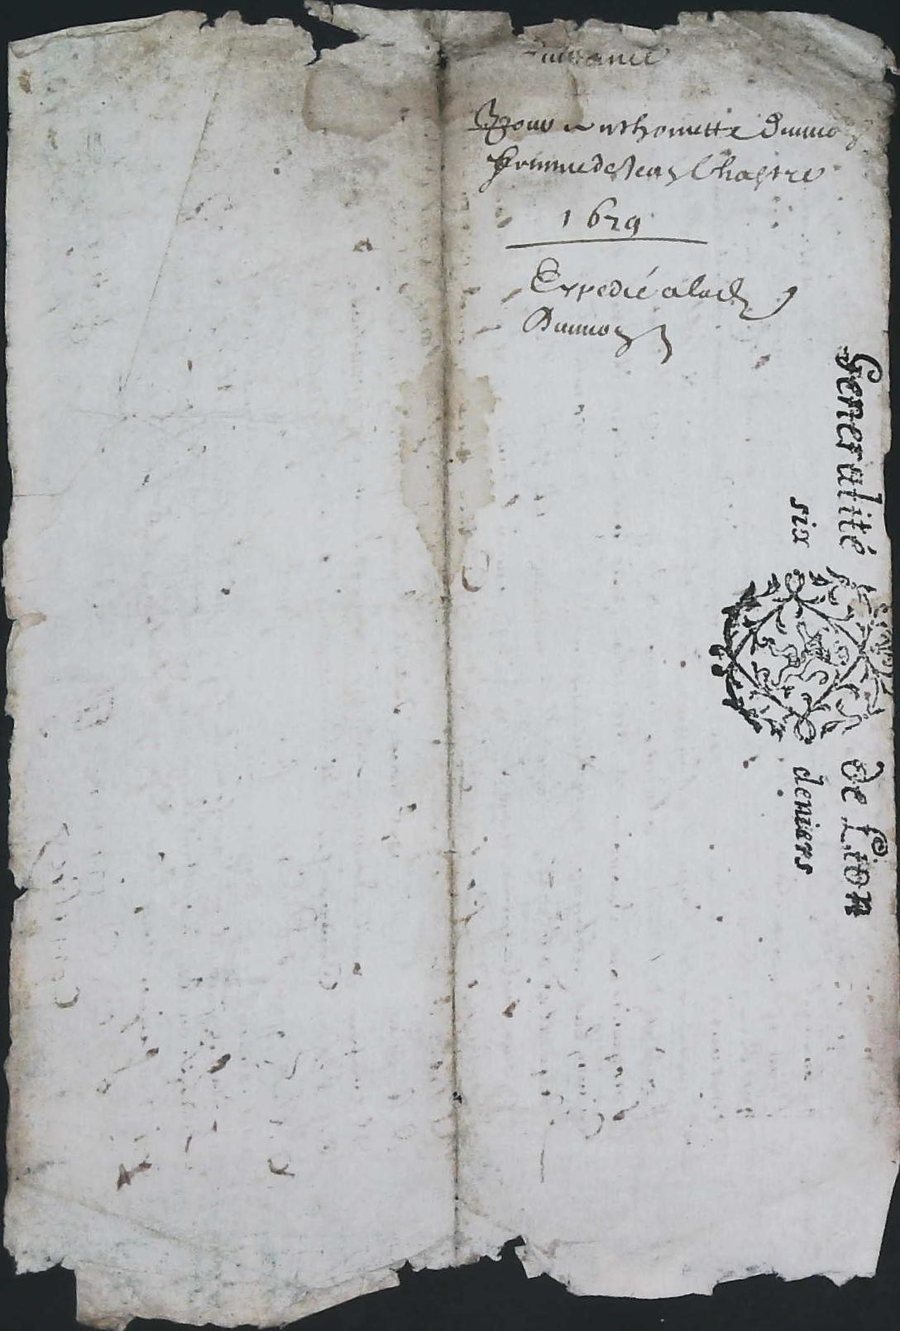 Pour Anthonette Dumo
femme de Jean Chastre
1679
Expedié a lad
Dumo
Generalité de Lion
six deniers